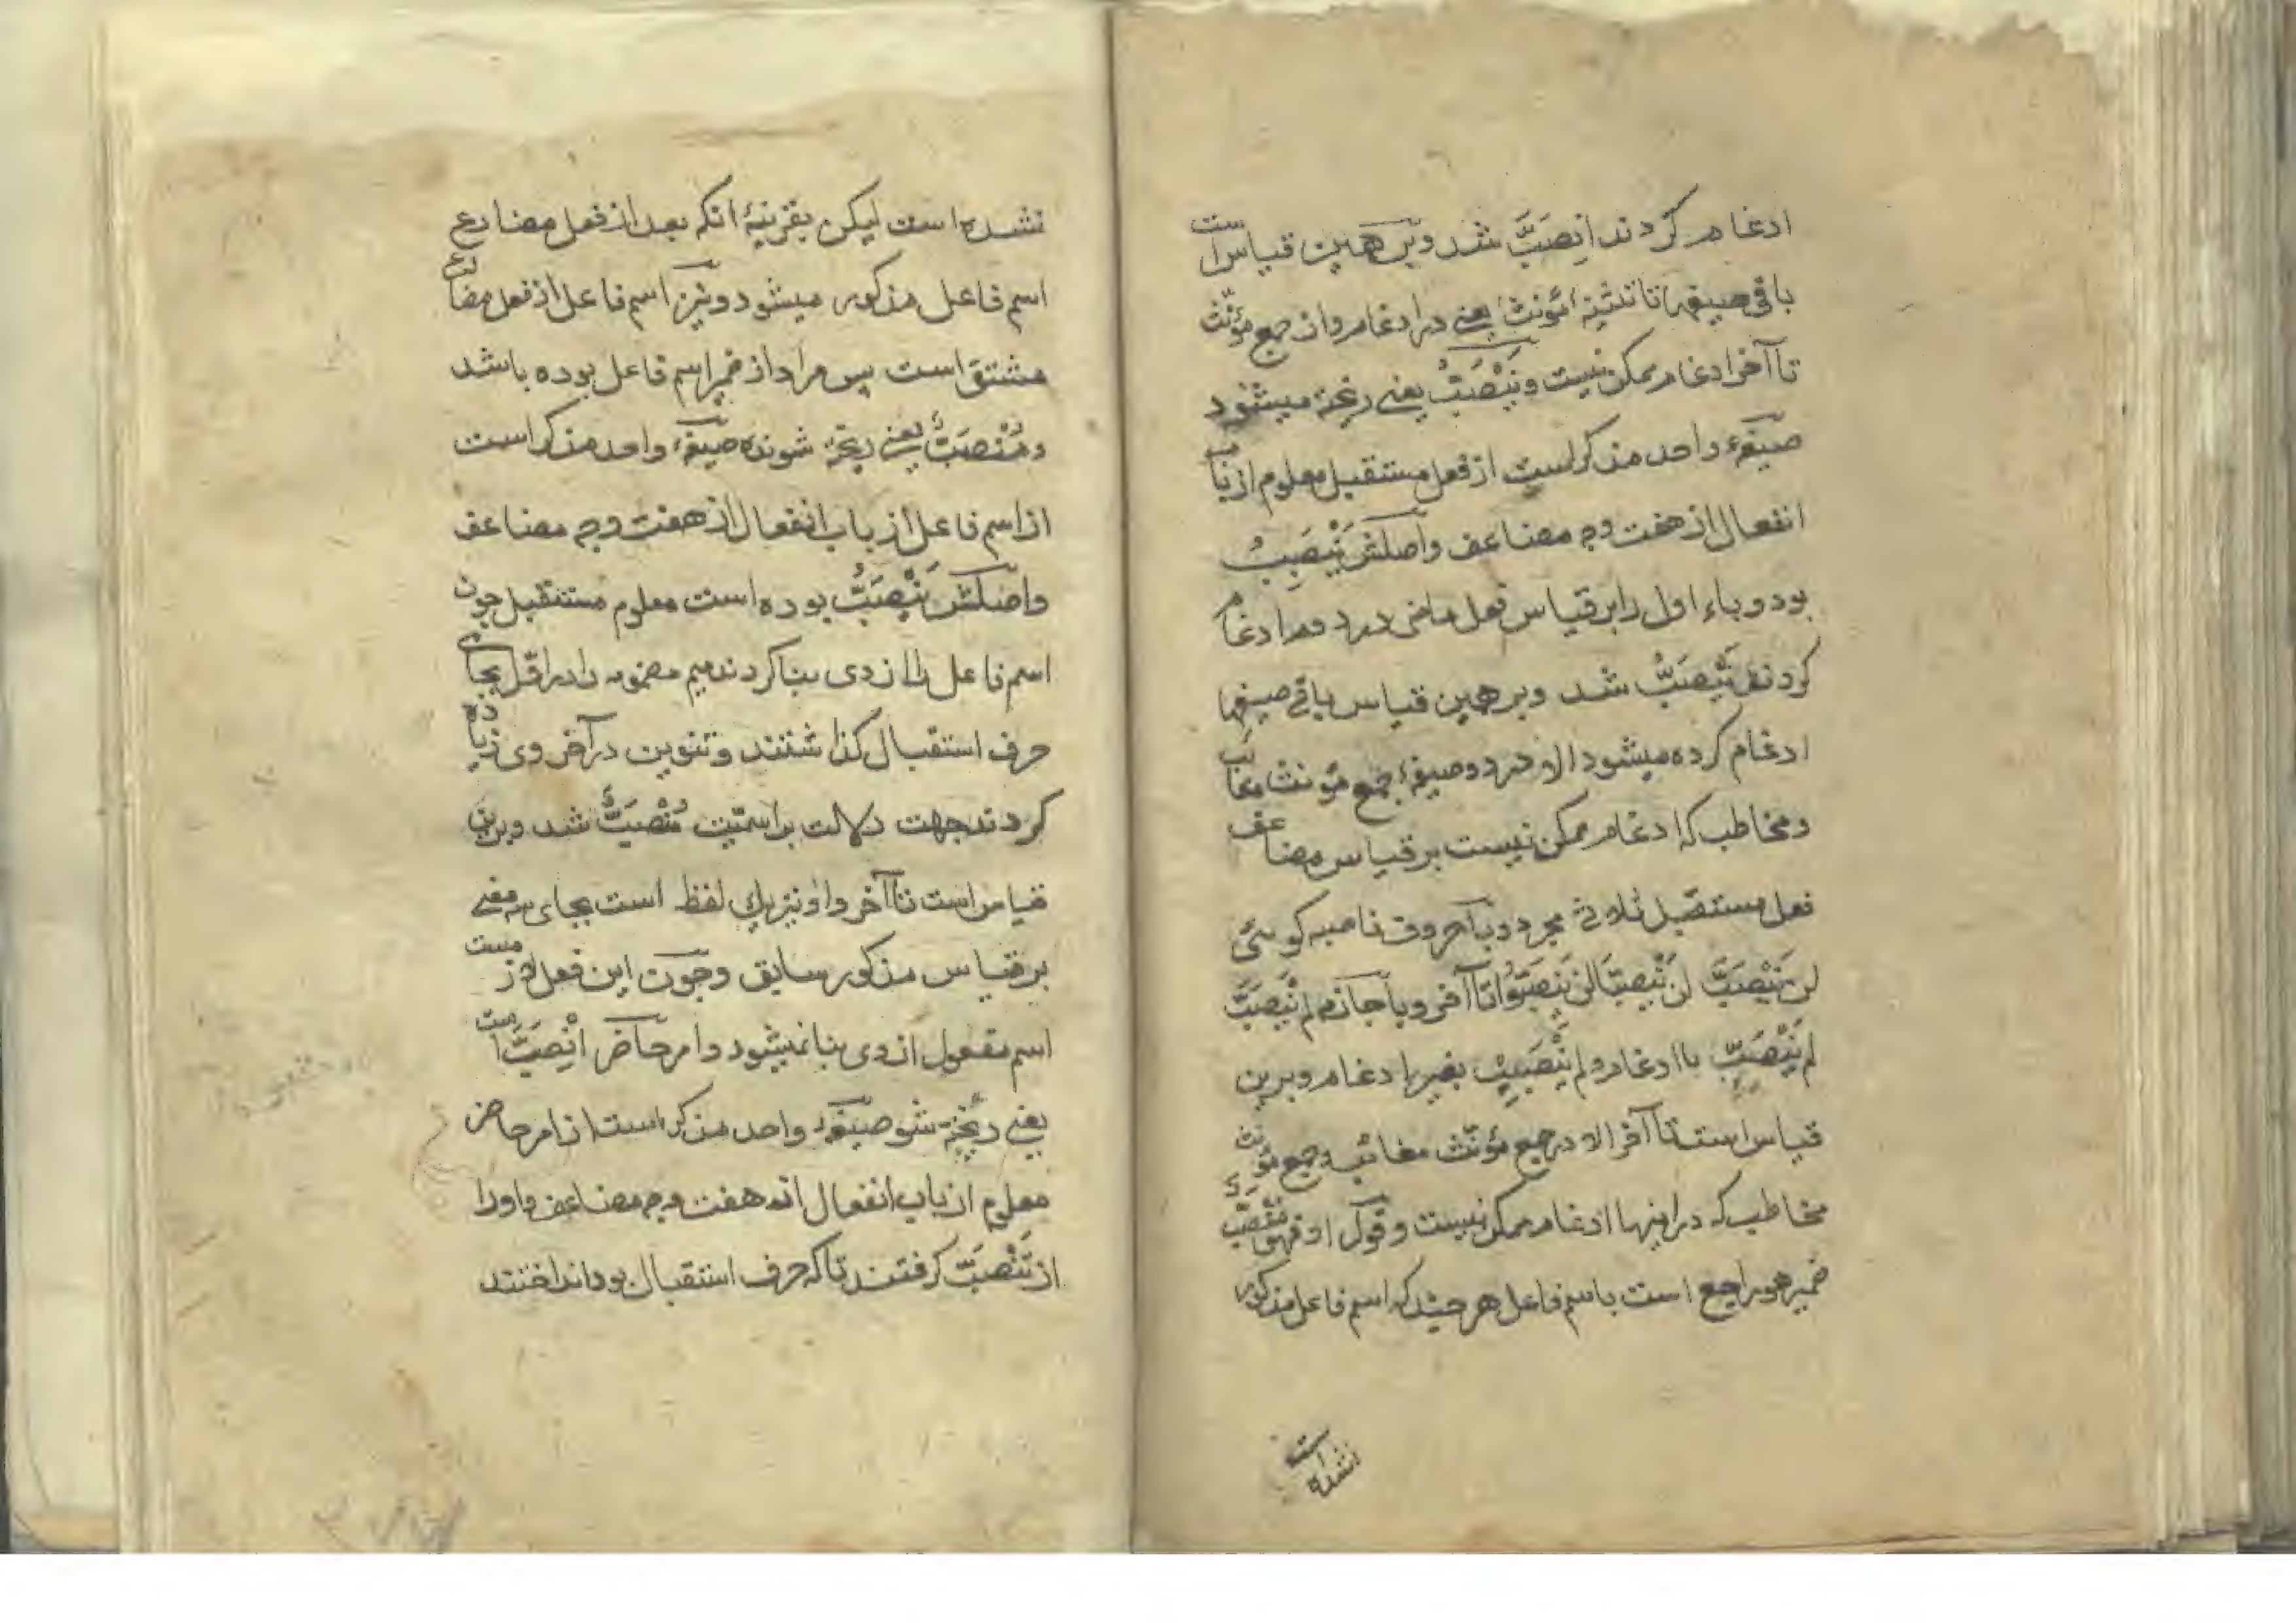 ادغام کردند اِنصَبَّ شد و برهمین قیاس است
باقی صیغها تا تثنیهٔ مؤنث یعنی در ادغام و از جمع مؤنّث
تا آخر ادغام ممکن نیست و یَنْصَبُّ یعنی ریخته میشود
صیغهٔ واحد مذکر است از فعل مستقبل معلوم از باب
انفعال از هفت وجه مضاعف و اصلش یَنْصَبِبُ
بود و باء اول را بر قیاس فعل ماضی در دوم ادغام
کردند یَنْصَبُّ شد و برهمین قیاس باقی صیغها
ادغام کرده میشود الا در دو صیغهٔ جمع مؤنث مغایب
و مخاطب که ادغام ممکن نیست بر قیاس مضاعف
فعل مستقبل ثلاثی مجرد و با حروف ناصبه کوئی
لن یَنْصَبَّ لن یَنْصَبَّا لن یَنْصَبُّوا تا آخر و با جازم لم یَنْصَبَّ
لم یَنْصَبِّ با ادغام و لم یَنْصَبِبْ بغیر ادغام و برین
قیاس است تا آخر الا در جمع مؤنّث مغائب و جمع مؤنث
مخاطب که در اینها ادغام ممکن نیست و قول او فهو مُنْصَبٌّ
ضمیر هو راجع است باسم فاعل هرچند که اسم فاعل مذکور
نشده است
نشده است لیکن بقرینهٔ انکه بعد از فعل مضارع
اسم فاعل مذکور میشود و نیز اسم فاعل از فعل مضارع
مشتق است پس مراد از ضمیر اسم فاعل بوده باشد
و مُنْصَبٌّ یعنی ریخته شونده صیغهٔ واحد مذکر است
از اسم فاعل از باب انفعال از هفت وجه مضاعف
و اصلش یَنْصَبُّ بوده است معلوم مستقبل چون
اسم فاعل را از وی بنا کردند میم مضمومه را در اوّل بجای
حرف استقبال کذاشتند و تنوین در آخر وی زیاده
کردند جهت دلالت بر اسمیّت مُنْصَبٌّ شد و برین
قیاس است تا آخر و او نیز یک لفظ است بجای سه معنی
بر قیاس مذکور سابق و چون این فعل لازمست
اسم مفعول از وی بنا نمیشود و امر حاضر اِنْصَبَّ است
یعنی ریخته شو صیغهٔ واحد مذکر است از امر حاضر
معلوم از باب انفعال از هفت وجه مضاعف و اورا
از تَنْصَبُّ کرفتند تا که حرف استقبال بود انداختند